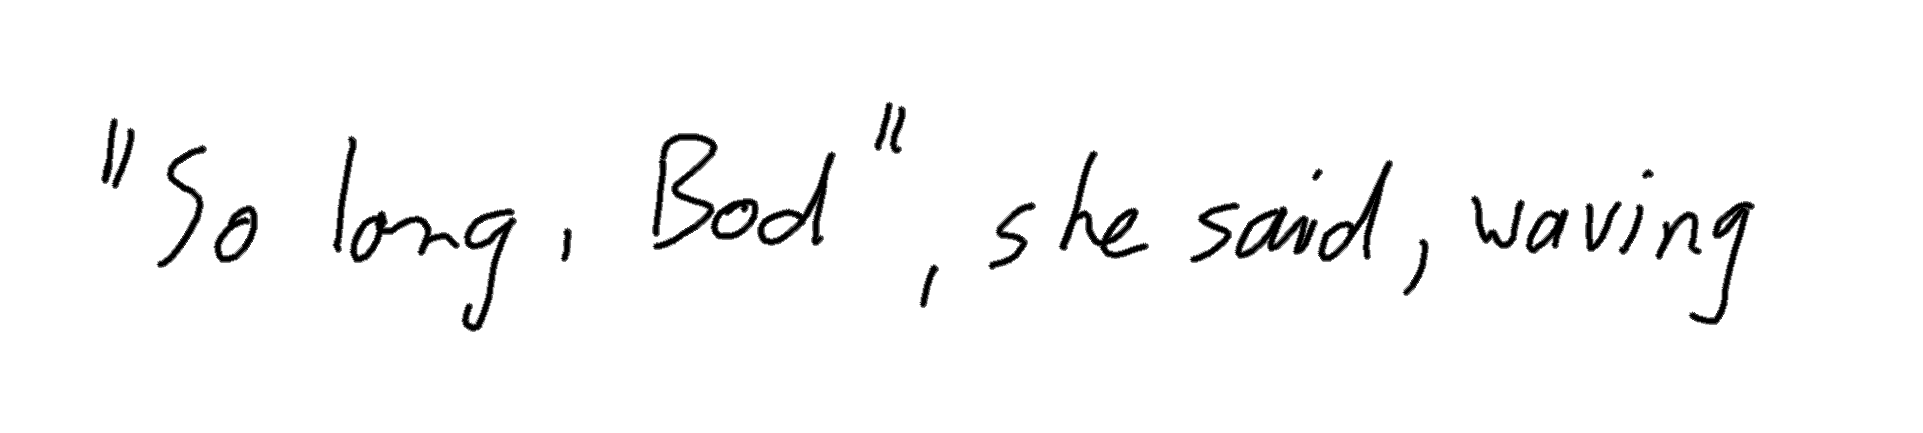 "So long, Bod", she said, waving